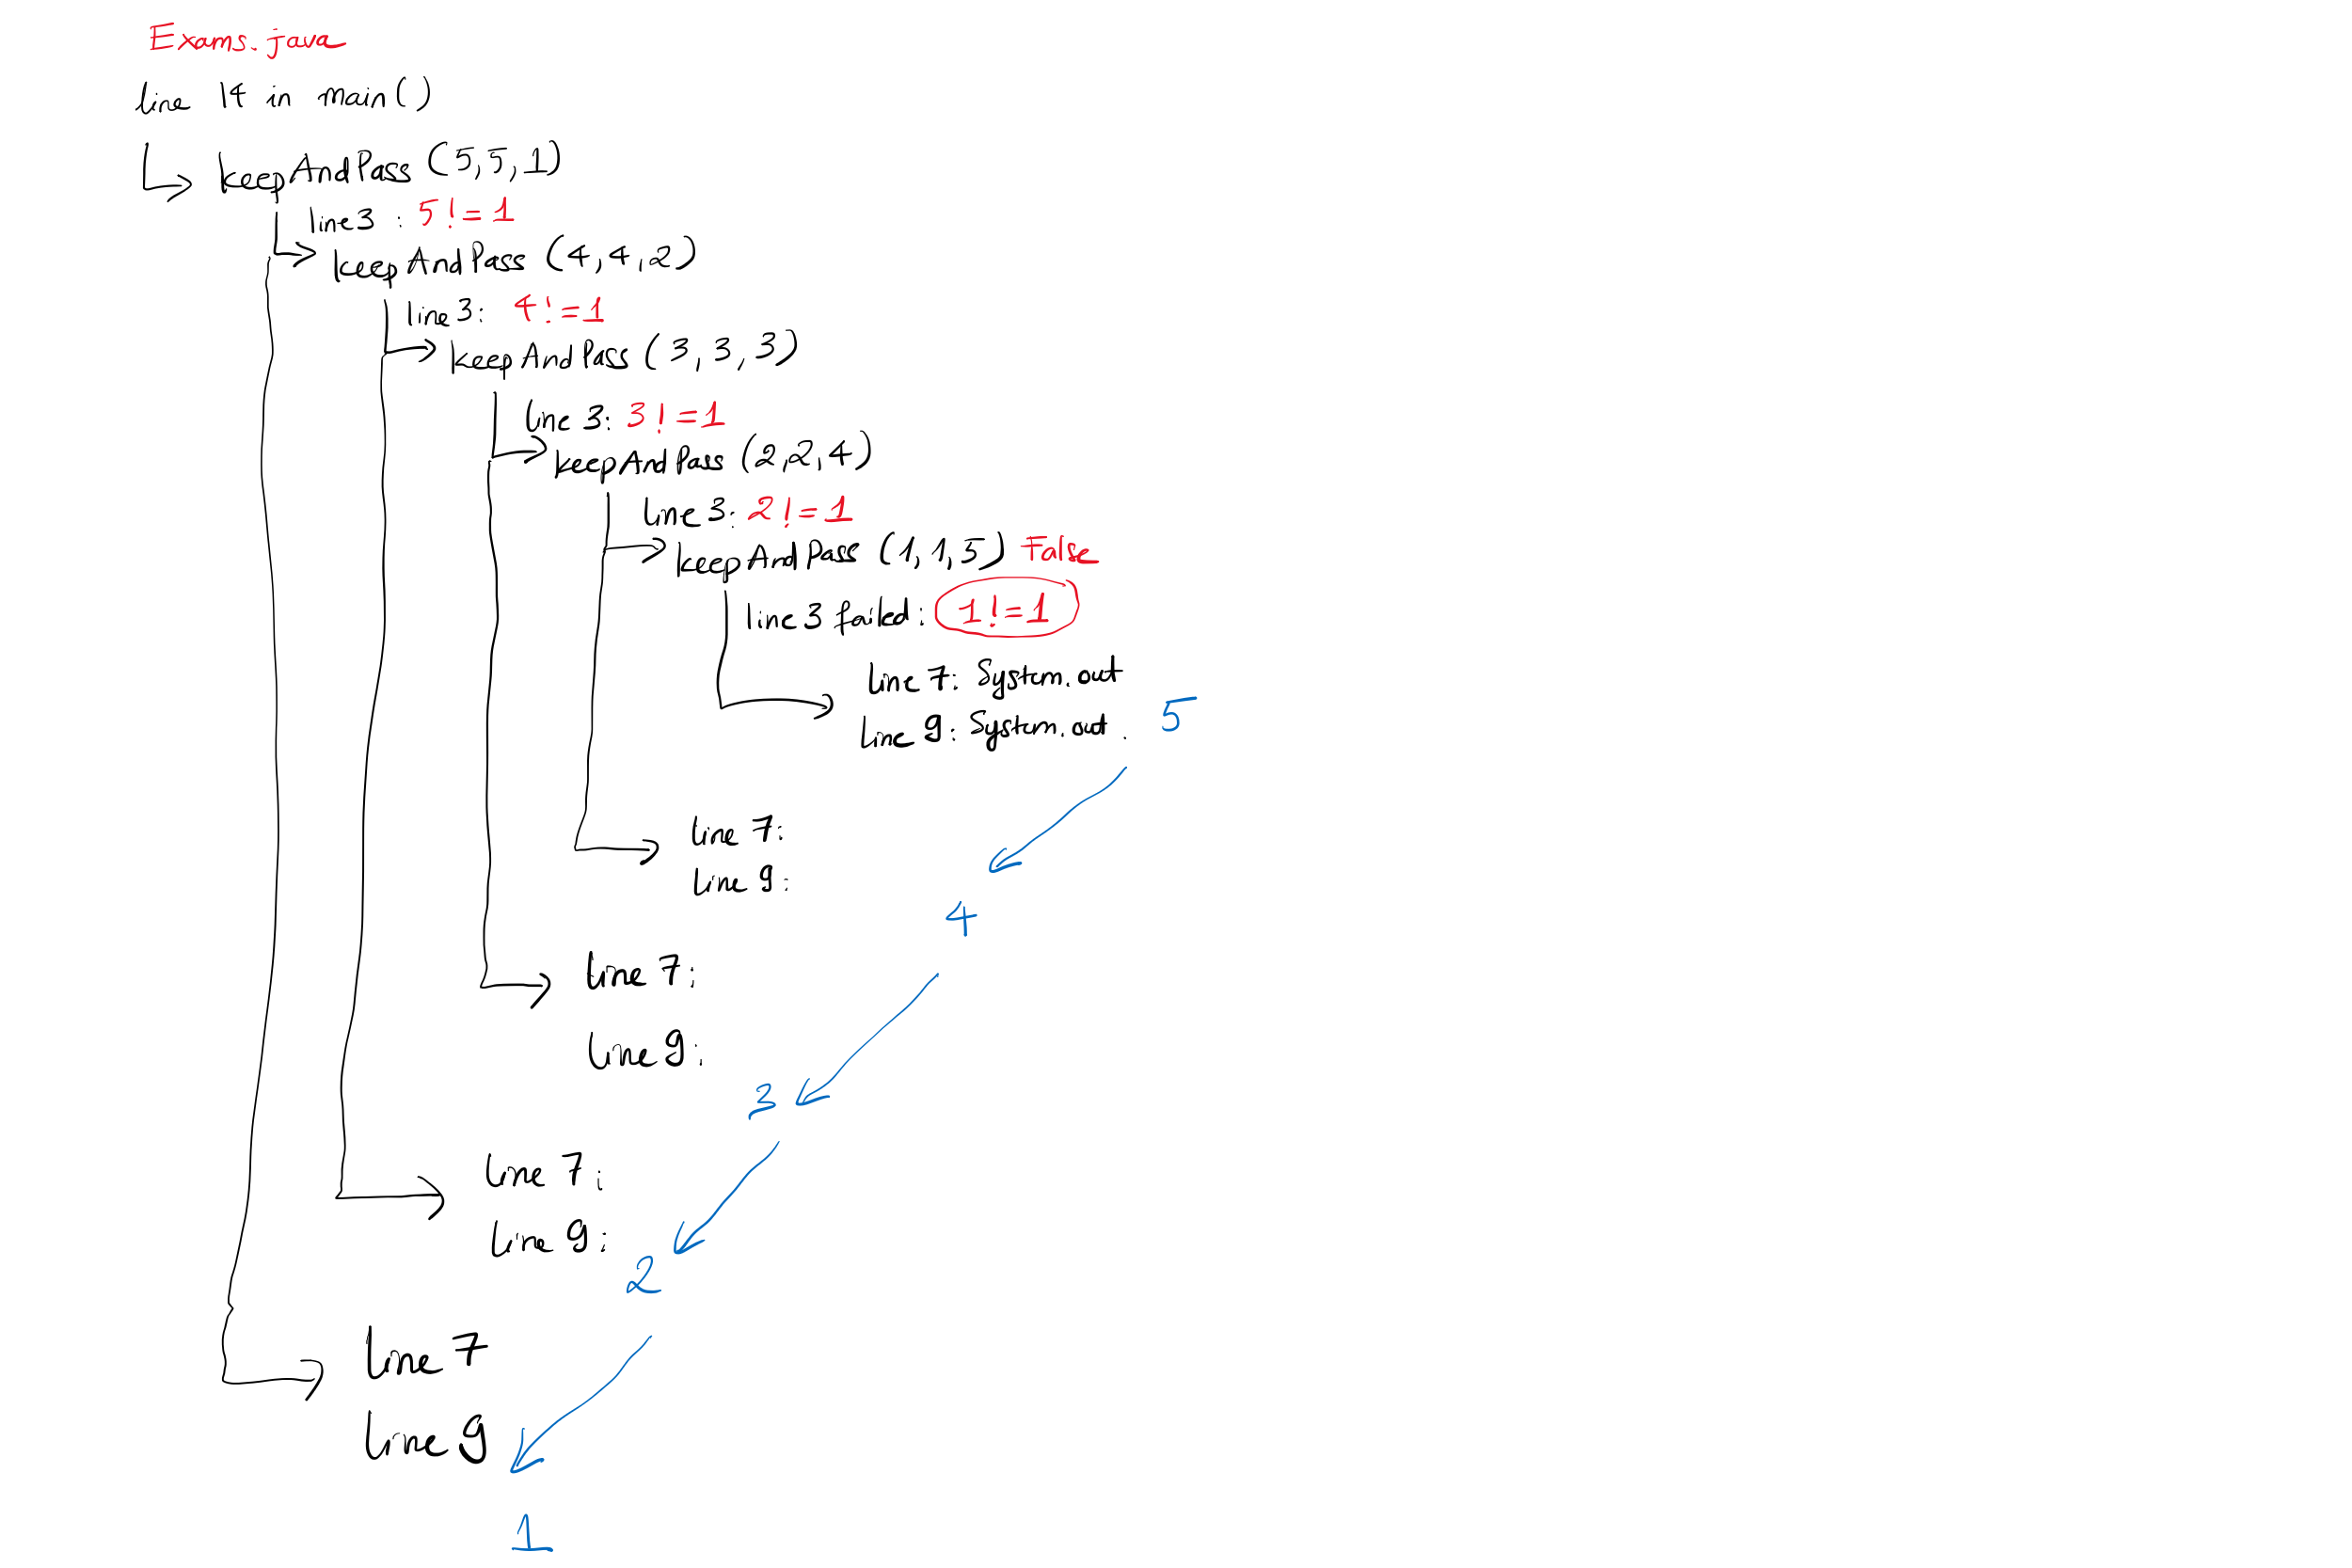 Exams.java
line 14 in main()
keepAndPass (5,5,1)
line 3 : 5 != 1
keepAndPass (4,4,2)
line 3: 4 != 1
keepAndPass (3, 3, 3)
line 3: 3 != 1
keepAndPass (2,2,4)
line 3: 2 != 1
keepAndPass (1,1,5) False
line 3 failed: 1 != 1
line 7: System.out
line 9: System.out. 5
line 7:
line 9:
4
line 7:
line 9:
3
line 7:
line 9:
2
line 7
line 9
1